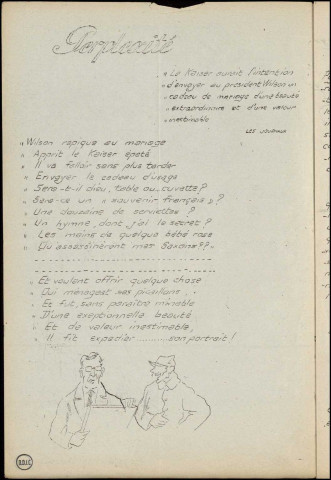 Perplexité
" Le Kaiser aurait l'intention
" d'envoyer au président Wilson un
" cadeau de mariage d'une beauté
" extraordinaire et d'une valeur
" inestimable
LES JOURNAUX
" Wilson rapique au mariage
" Apprit le Kaiser épaté
" Il va falloir sans plus tarder
" Envoyer le cadeau d'usage
" Sera-t-il dieu, table ou cuvette ?
" Sera-ce un " souvenir français " ?
" Une douzaine de serviettes ?
" Un hymne, dont j'ai le secret ?
" Les mains de quelque bébé rose
" Qu'assassinèrent mes Saxons ??
" Et voulant offrir quelque chose
" Qui ménageât ses picaillons
" Et fut, sans paraître minable
" D'une exeptionnelle beauté
" Et de valeur inestimable,
" Il fit expédier ........ son portrait !
B.D.I.C